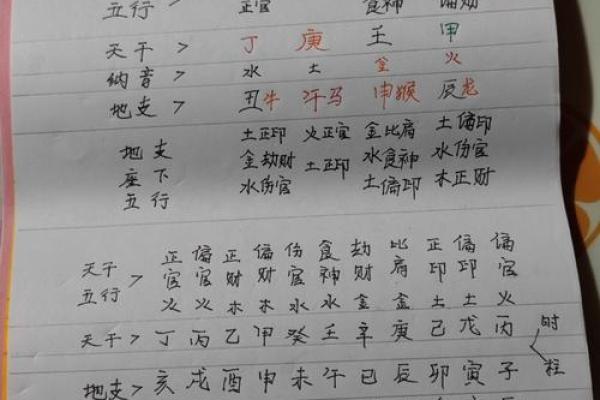 五行 > 正官 食神 偏财
天干 > 丁 庚 壬 甲
纳音 > 水 土 金 火
地支 > 丑牛 午马 申猴 辰龙
土正印 火正官 金比肩 土偏印
地支 金劫财 土正印 水食神 水伤官
座下 水伤官 土偏印 木正财
五行
正 偏 正 偏 伤 食 劫 比 正 偏 偏
天干 > 官 官 财 财 官 神 财 肩 印 印 官
五行 火 火 木 木 水 水 金 金 土 土 火
天干 > 丁 丙 乙 甲 癸 壬 辛 庚 己 戊 丙 时柱
地支 > 亥 戌 酉 申 未 午 巳 辰 卯 寅 子